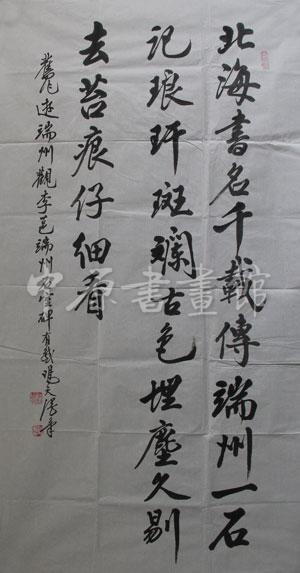 北海書名千載傳端州一石
記琅玕斑斕古色埋塵久剔
去苔痕仔細看
遊端州觀李邕端州石室碑有感
中原書畫館